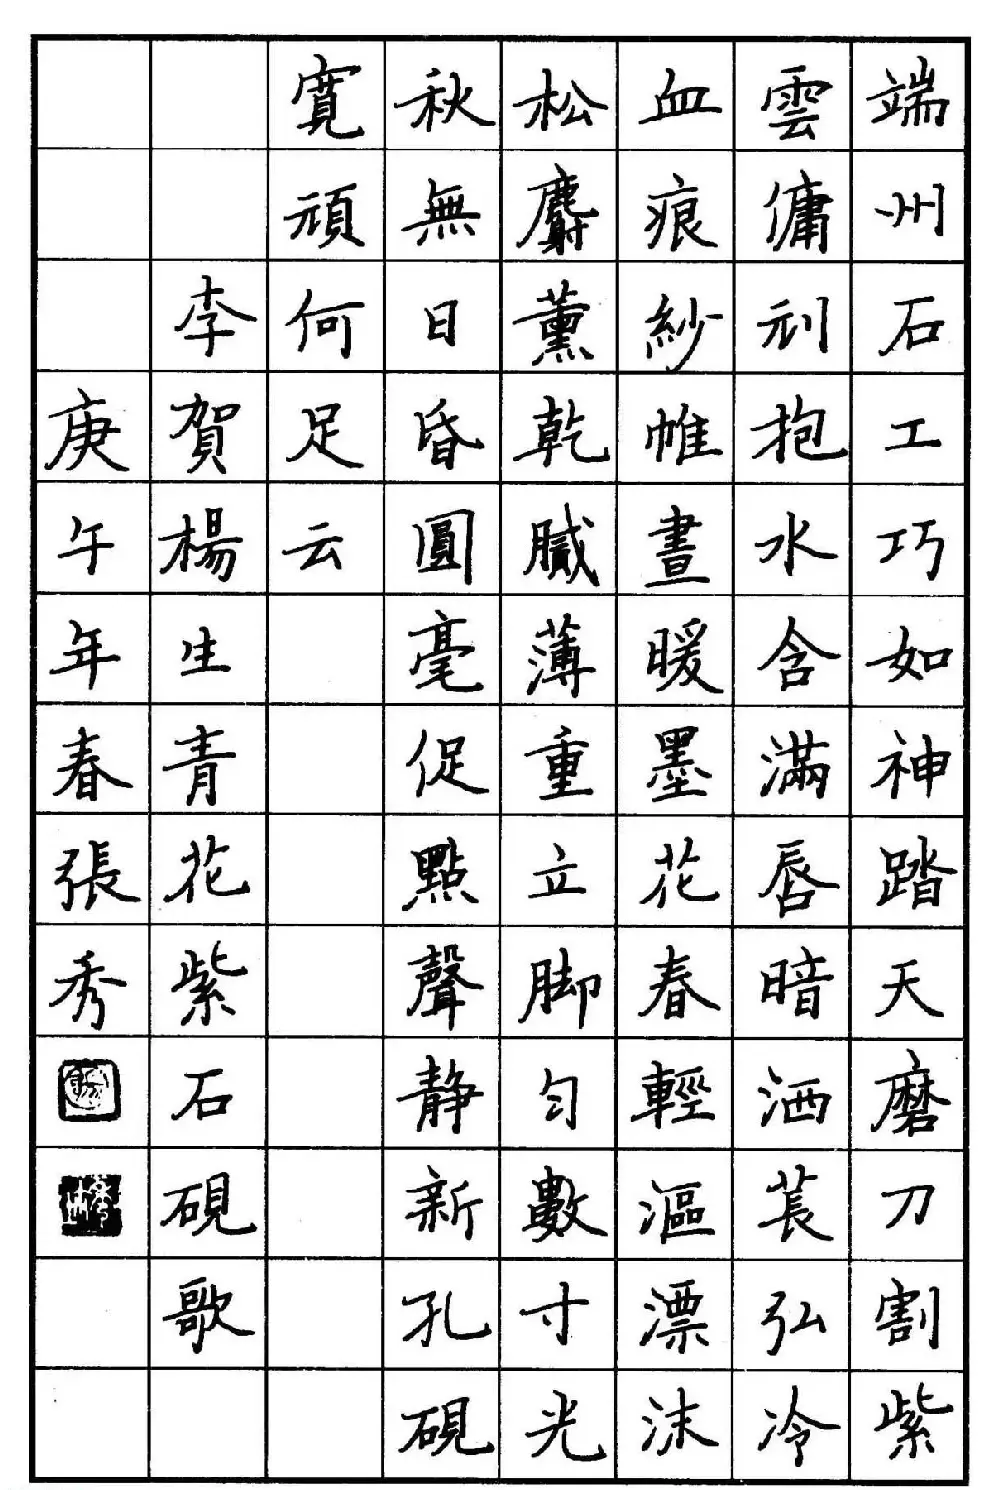 端州石工巧如神踏天磨刀割紫
雲傭刓抱水含滿唇暗洒萇弘冷
血痕紗帷晝暖墨花春輕漚漂沫
松麝薰乾膩薄重立脚勻數寸光
秋無日昏圓毫促點聲静新孔硯
寬頑何足云
李賀楊生青花紫石硯歌
庚午年春張秀